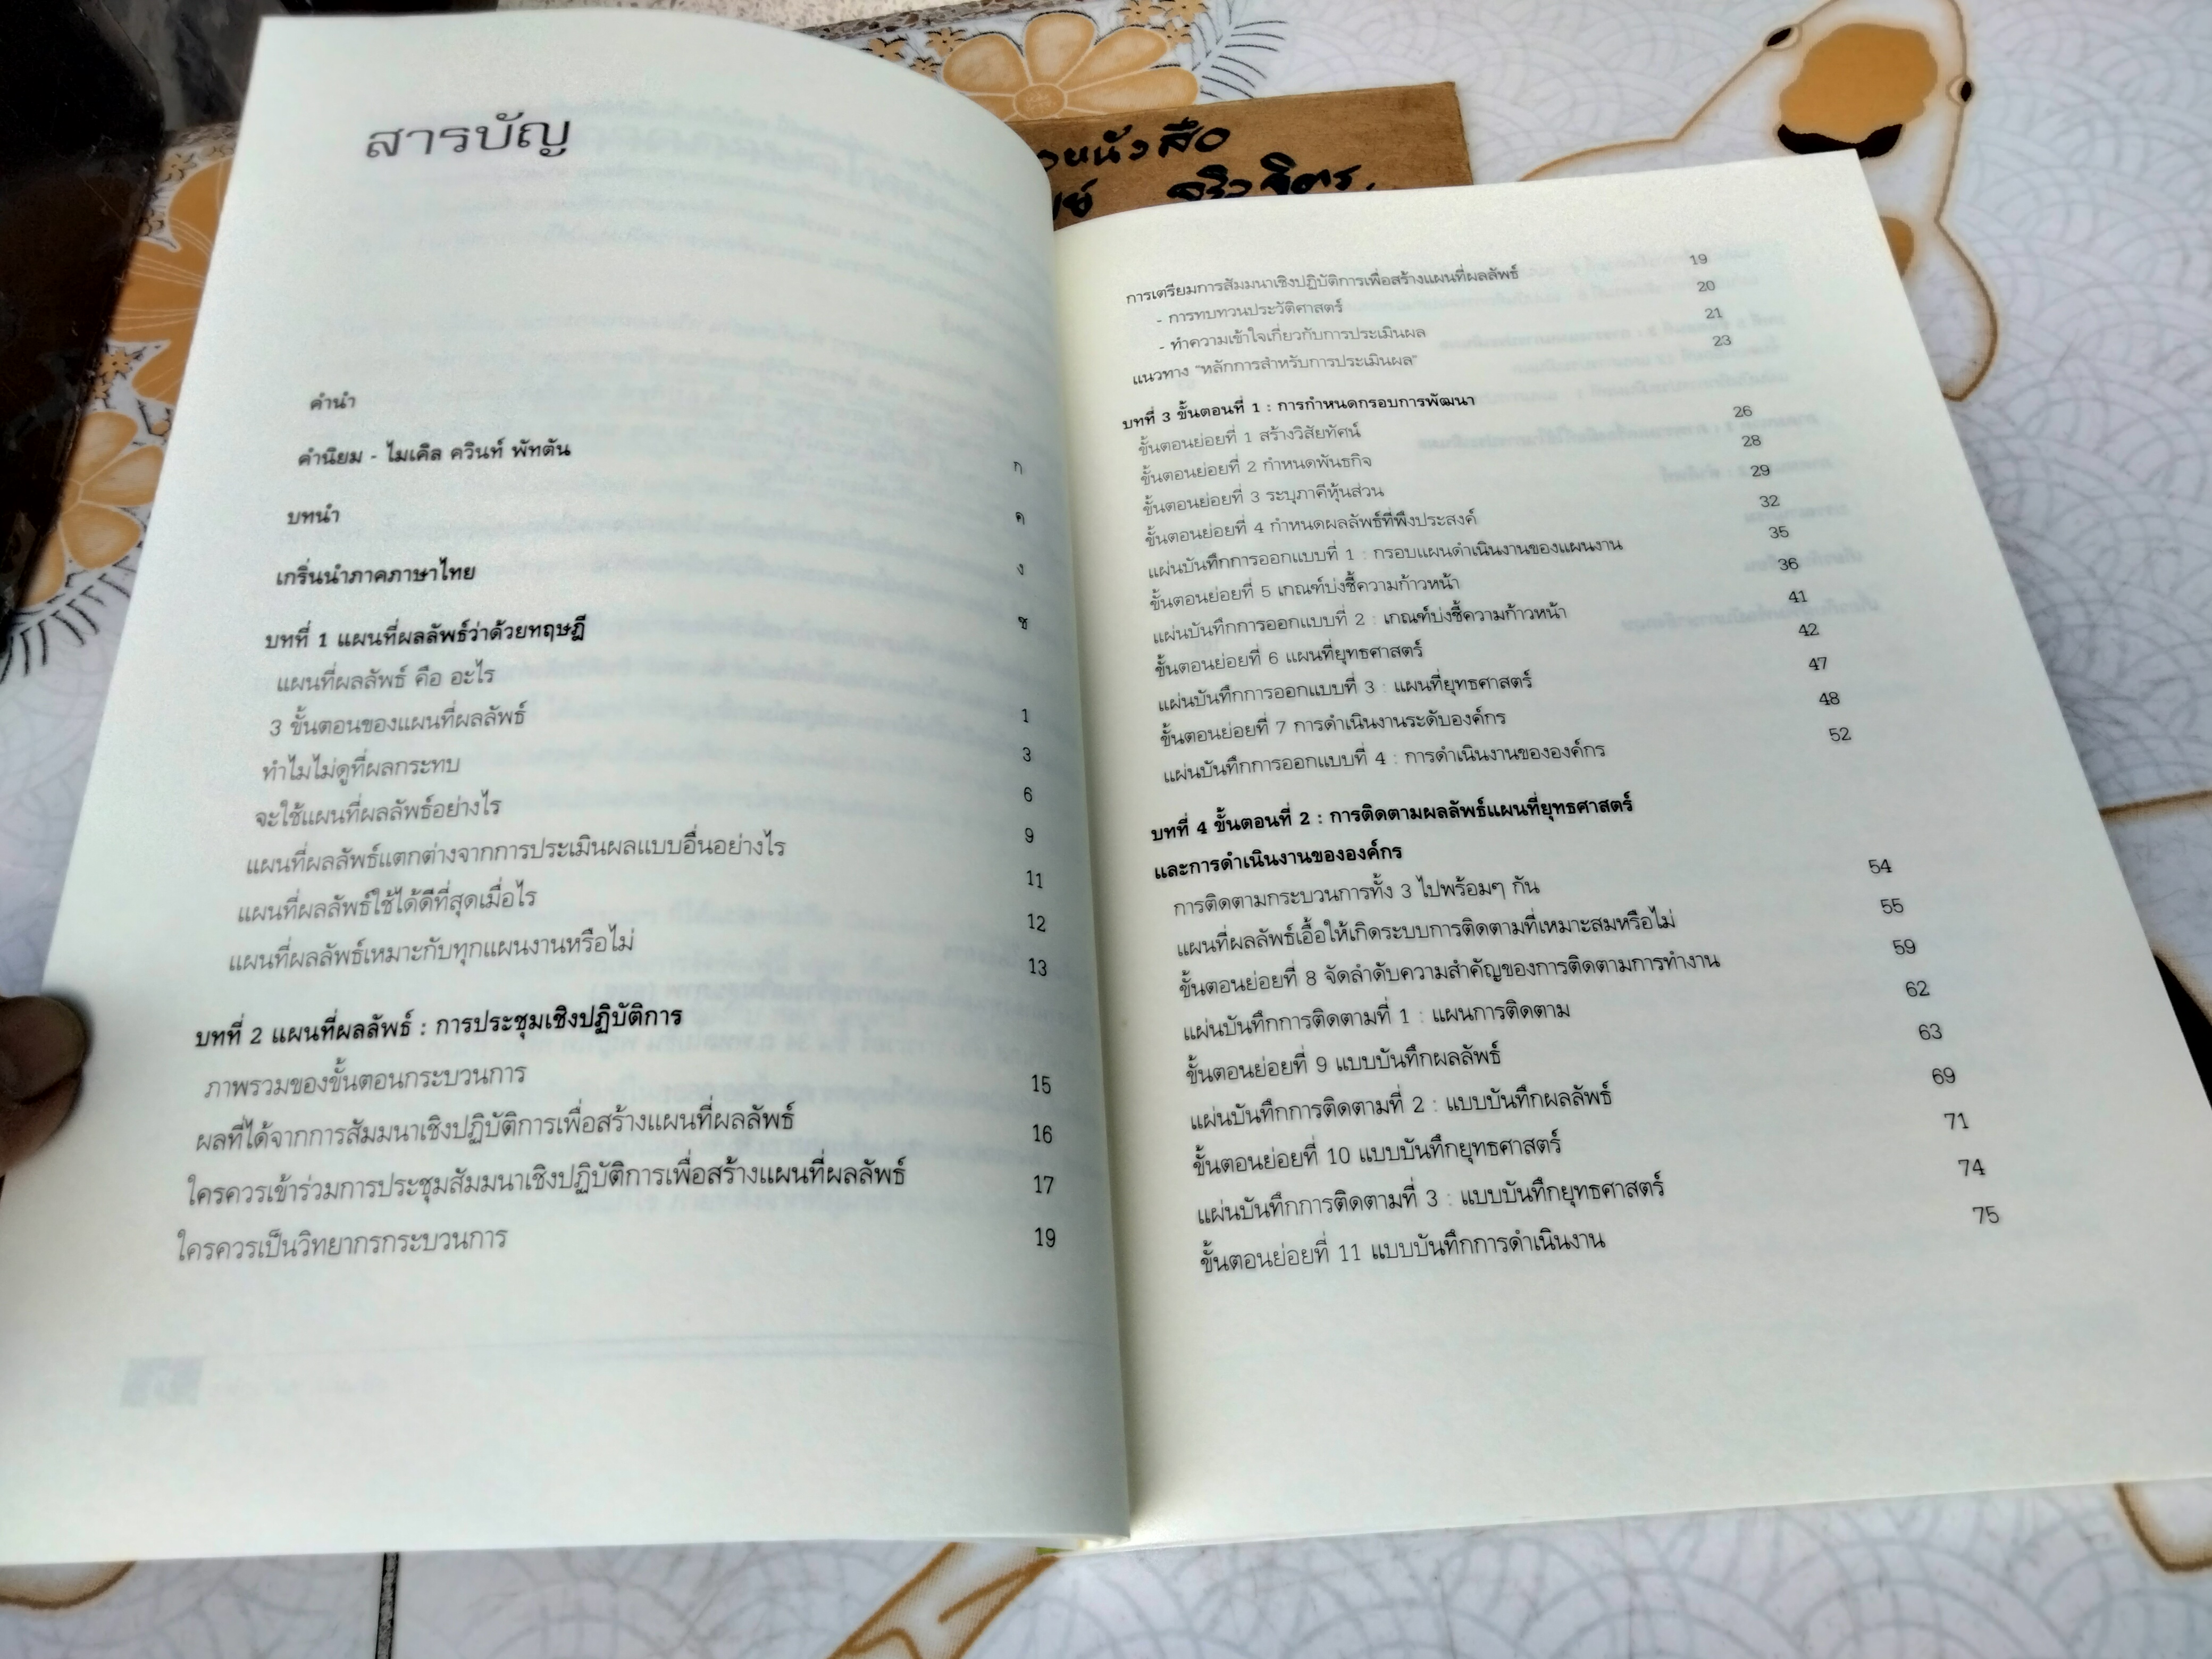 สารบัญ
คำนำ ก
คำนิยม - ไมเคิล ควินท์ พัทตัน ค
บทนำ ง
เกริ่นนำภาคภาษาไทย ช
บทที่ 1 แผนที่ผลลัพธ์ว่าด้วยทฤษฎี
แผนที่ผลลัพธ์ คือ อะไร 1
3 ขั้นตอนของแผนที่ผลลัพธ์ 3
ทำไมไม่ดูที่ผลกระทบ 6
จะใช้แผนที่ผลลัพธ์อย่างไร 9
แผนที่ผลลัพธ์แตกต่างจากการประเมินผลแบบอื่นอย่างไร 11
แผนที่ผลลัพธ์ใช้ได้ดีที่สุดเมื่อไร 12
แผนที่ผลลัพธ์เหมาะกับทุกแผนงานหรือไม่ 13
บทที่ 2 แผนที่ผลลัพธ์ : การประชุมเชิงปฏิบัติการ
ภาพรวมของขั้นตอนกระบวนการ 15
ผลที่ได้จากการสัมมนาเชิงปฏิบัติการเพื่อสร้างแผนที่ผลลัพธ์ 16
ใครควรเข้าร่วมการประชุมสัมมนาเชิงปฏิบัติการเพื่อสร้างแผนที่ผลลัพธ์ 17
ใครควรเป็นวิทยากรกระบวนการ 19
หนังสือ
การเตรียมการสัมมนาเชิงปฏิบัติการเพื่อสร้างแผนที่ผลลัพธ์ 19
- การทบทวนประวัติศาสตร์ 20
- ทำความเข้าใจเกี่ยวกับการประเมินผล 21
แนวทาง "หลักการสำหรับการประเมินผล" 23
บทที่ 3 ขั้นตอนที่ 1 : การกำหนดกรอบการพัฒนา
ขั้นตอนย่อยที่ 1 สร้างวิสัยทัศน์ 26
ขั้นตอนย่อยที่ 2 กำหนดพันธกิจ 28
ขั้นตอนย่อยที่ 3 ระบุภาคีหุ้นส่วน 29
ขั้นตอนย่อยที่ 4 กำหนดผลลัพธ์ที่พึงประสงค์ 32
แผ่นบันทึกการออกแบบที่ 1 : กรอบแผนดำเนินงานของแผนงาน 35
ขั้นตอนย่อยที่ 5 เกณฑ์บ่งชี้ความก้าวหน้า 36
แผ่นบันทึกการออกแบบที่ 2 : เกณฑ์บ่งชี้ความก้าวหน้า 41
ขั้นตอนย่อยที่ 6 แผนที่ยุทธศาสตร์ 42
แผ่นบันทึกการออกแบบที่ 3 : แผนที่ยุทธศาสตร์ 47
ขั้นตอนย่อยที่ 7 การดำเนินงานระดับองค์กร 48
แผ่นบันทึกการออกแบบที่ 4 : การดำเนินงานขององค์กร 52
บทที่ 4 ขั้นตอนที่ 2 : การติดตามผลลัพธ์แผนที่ยุทธศาสตร์
และการดำเนินงานขององค์กร
การติดตามกระบวนการทั้ง 3 ไปพร้อมๆ กัน 54
แผนที่ผลลัพธ์เอื้อให้เกิดระบบการติดตามที่เหมาะสมหรือไม่ 55
ขั้นตอนย่อยที่ 8 จัดลำดับความสำคัญของการติดตามการทำงาน 59
แผ่นบันทึกการติดตามที่ 1 : แผนการติดตาม 62
ขั้นตอนย่อยที่ 9 แบบบันทึกผลลัพธ์ 63
แผ่นบันทึกการติดตามที่ 2 : แบบบันทึกผลลัพธ์ 69
ขั้นตอนย่อยที่ 10 แบบบันทึกยุทธศาสตร์ 71
แผ่นบันทึกการติดตามที่ 3 : แบบบันทึกยุทธศาสตร์ 74
ขั้นตอนย่อยที่ 11 แบบบันทึกการดำเนินงาน 75